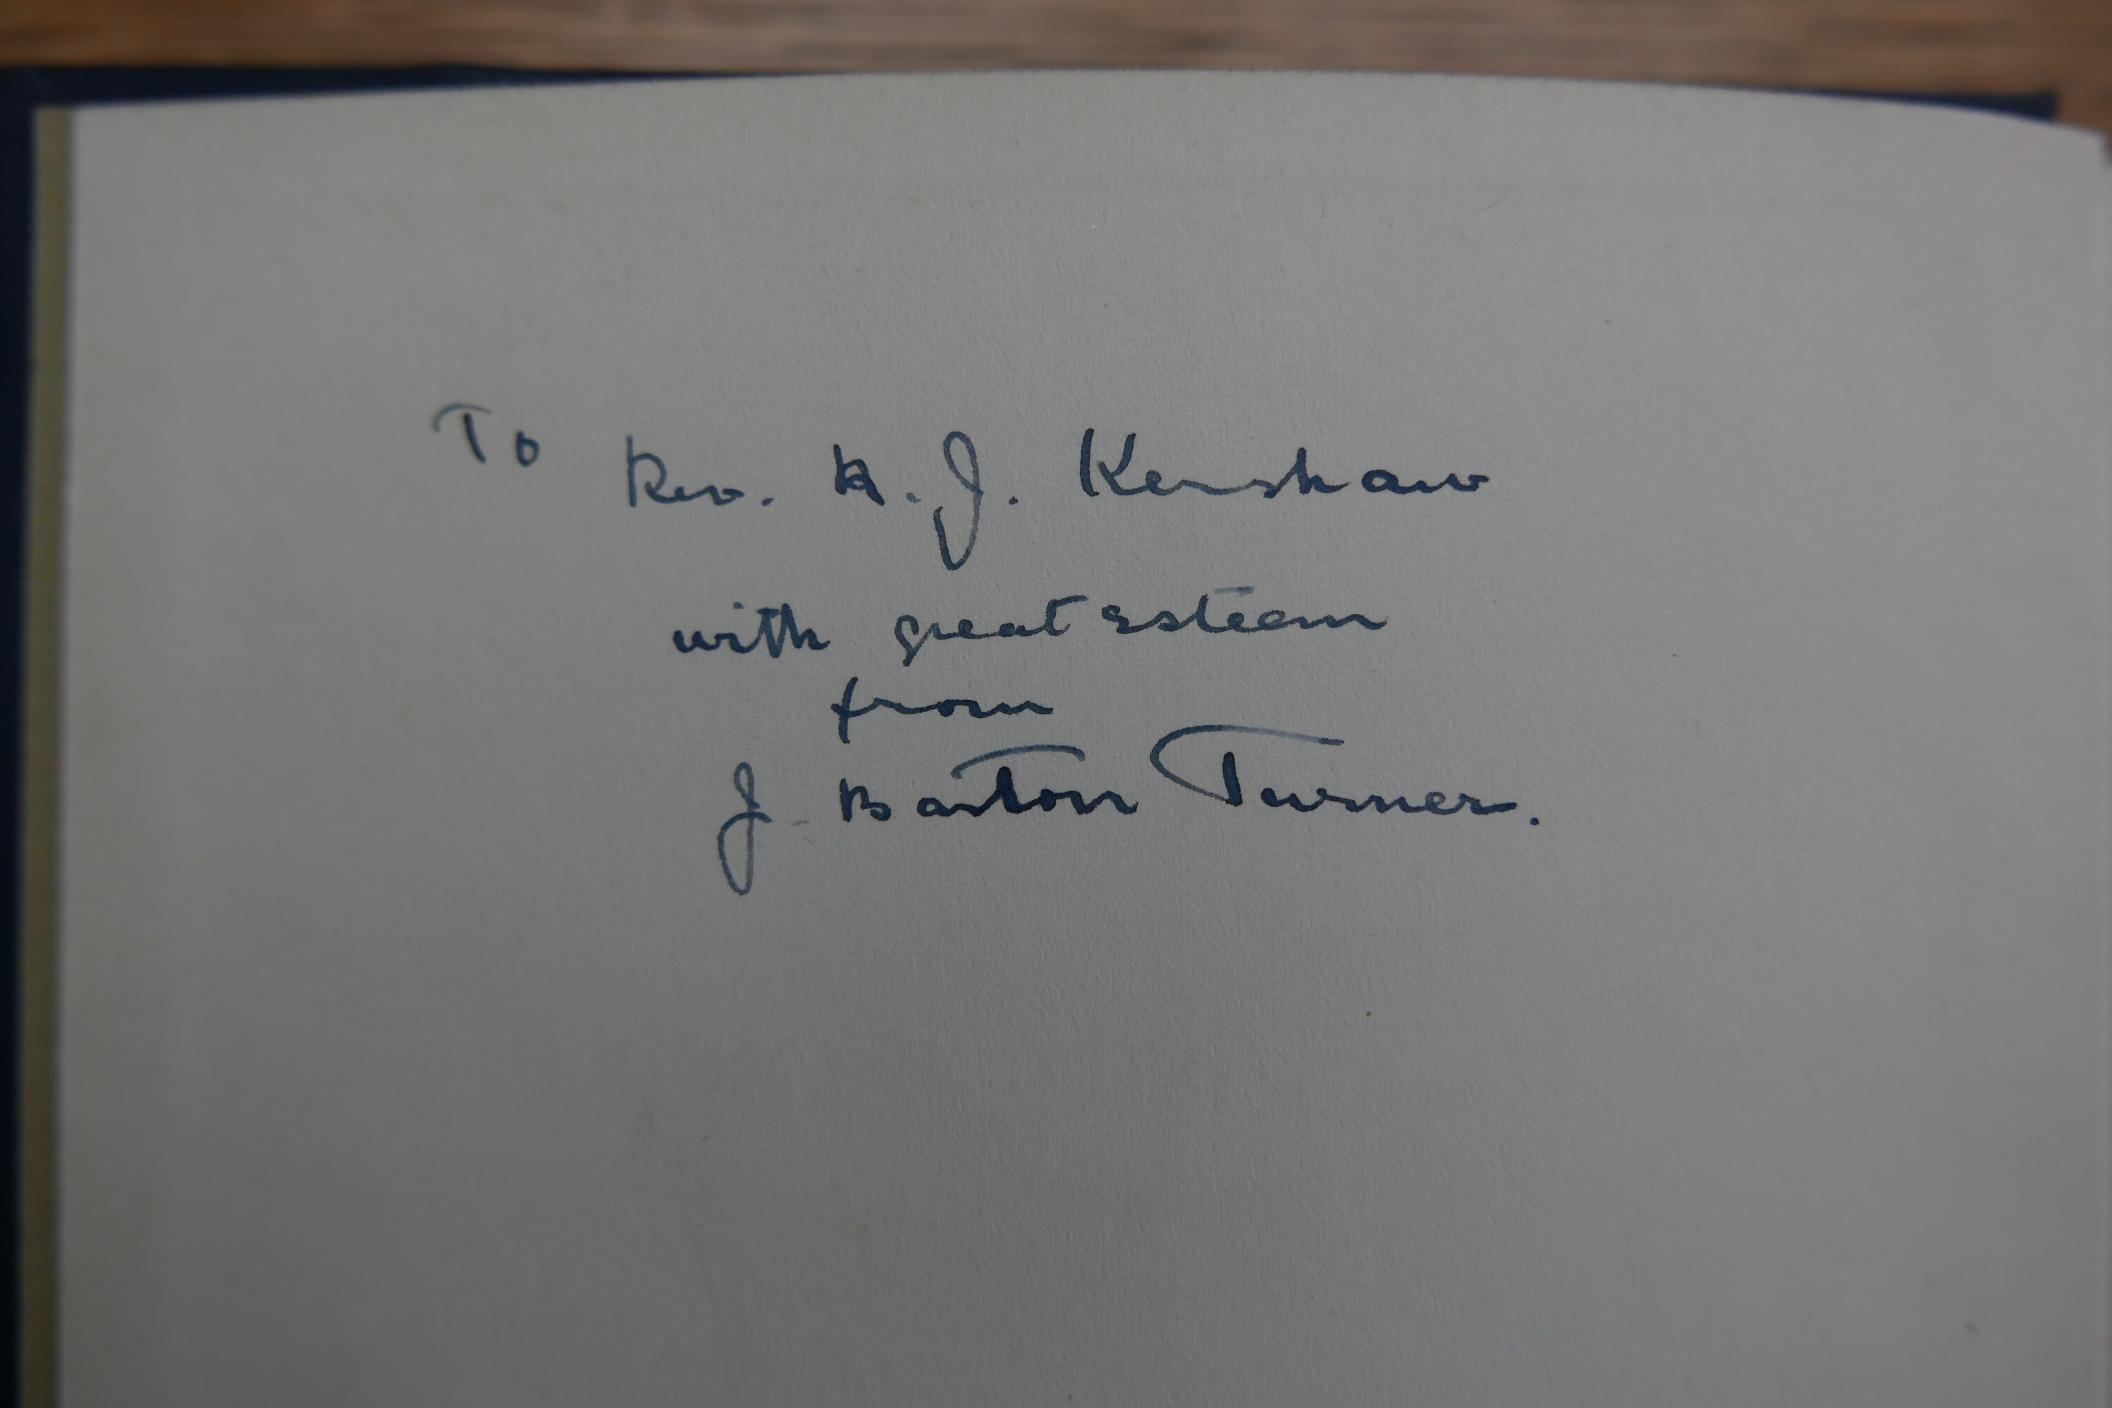 To Rev. R. J. Kershaw
with great esteem
from
J. Barton Turner.